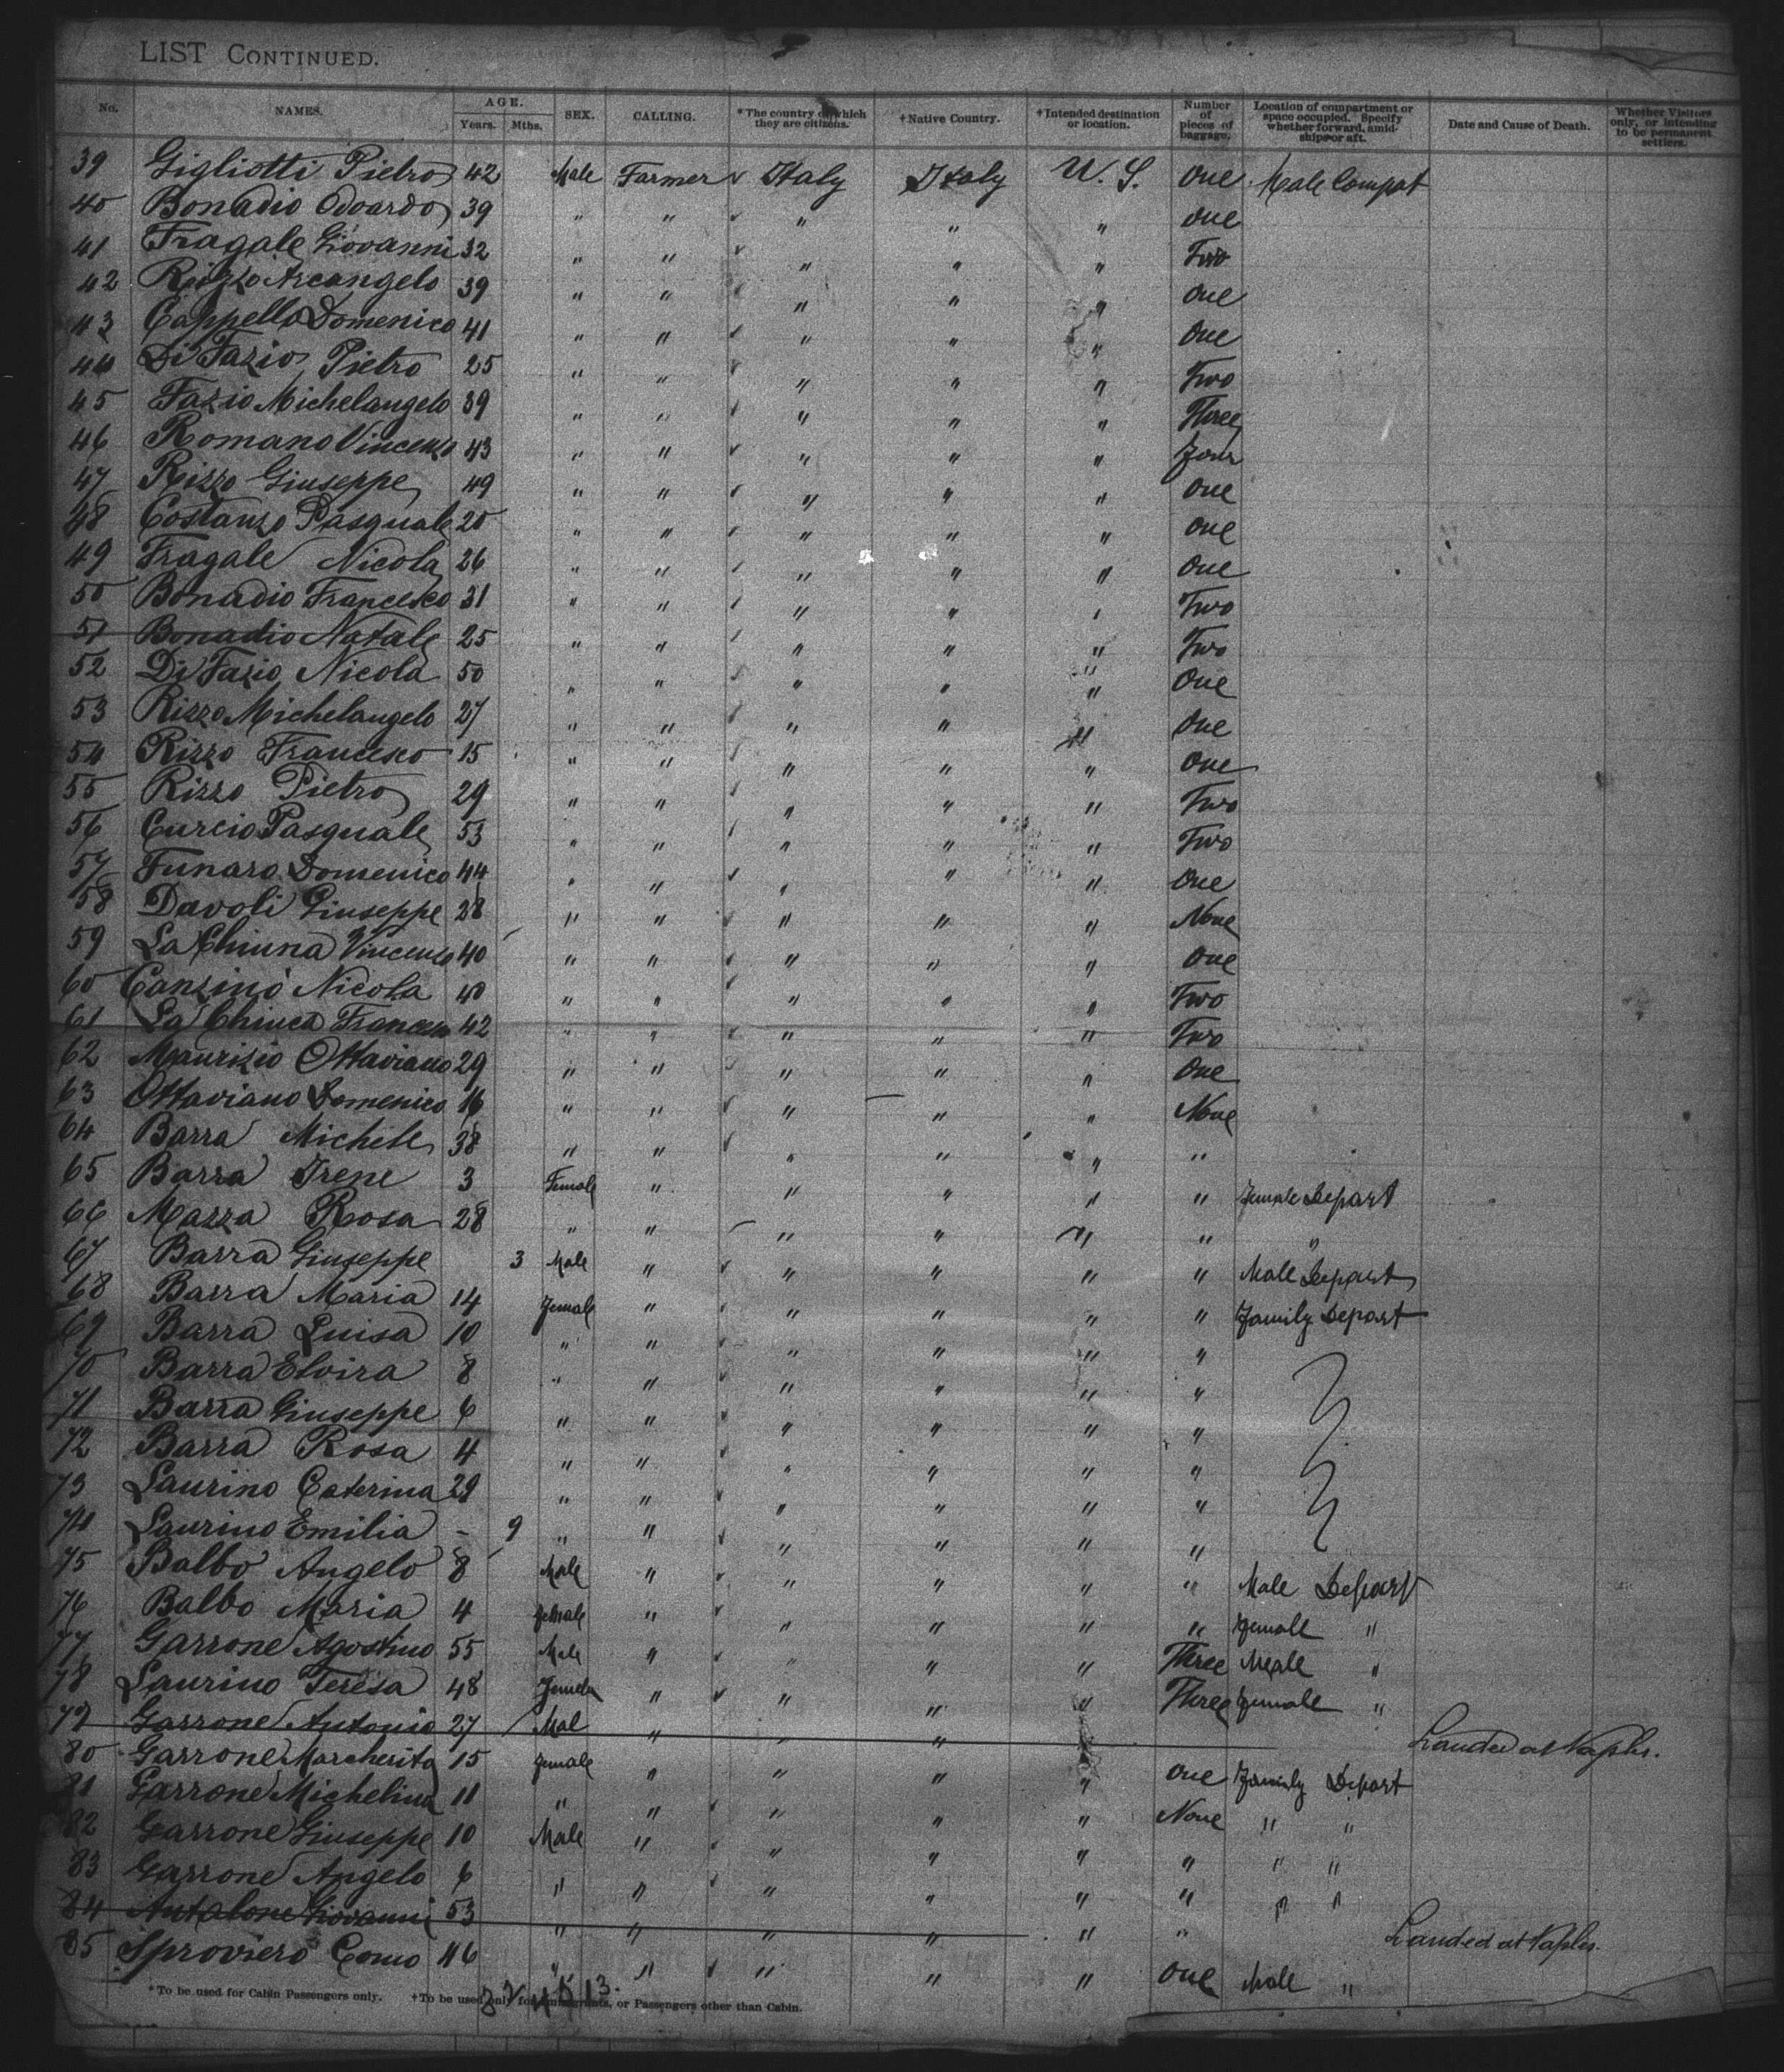 LIST CONTINUED.
No. NAMES. AGE. Years. Mths. SEX. CALLING. *The country of which they are citizens. †Native Country. †Intended destination or location. Number of pieces of baggage. Location of compartment or space occupied. Specify whether forward, amidships or aft. Date and Cause of Death. Whether Visitors only, or intending to be permanent settlers.
39 Gigliotti Pietro 42 Male Farmer Italy Italy U. S. One Male Compat
40 Bonadio Odoardo 39 " " " " " One
41 Fragale Giovanni 32 " " " " " Two
42 Rizzo Arcangelo 39 " " " " " One
43 Cappello Domenico 41 " " " " " One
44 Di Fazio Pietro 25 " " " " " Two
45 Fazio Michelangelo 39 " " " " " Three
46 Romano Vincenzo 43 " " " " " Four
47 Rizzo Giuseppe 49 " " " " " One
48 Costanzo Pasquale 20 " " " " " One
49 Fragale Nicola 26 " " " " " One
50 Bonadio Francesco 31 " " " " " Two
51 Bonadio Natale 25 " " " " " Two
52 Di Fazio Nicola 50 " " " " " One
53 Rizzo Michelangelo 27 " " " " " One
54 Rizzo Francesco 15 " " " " " One
55 Rizzo Pietro 29 " " " " " Two
56 Curcio Pasquale 53 " " " " " Two
57 Funaro Domenico 44 " " " " " One
58 Davoli Giuseppe 28 " " " " " None
59 La Chiuna Vincenzo 40 " " " " " One
60 Canzino Nicola 40 " " " " " Two
61 La Chiuca Francesco 42 " " " " " Two
62 Maurizio Ottaviano 29 " " " " " One
63 Ottaviano Domenico 16 " " " " " None
64 Barra Michele 38 " " " " " "
65 Barra Irene 3 Female " " " " " Female Depart
66 Mazza Rosa 28 " " " " " " "
67 Barra Giuseppe 3 Male " " " " " Male Depart
68 Barra Maria 14 Female " " " " " Family Depart
69 Barra Luisa 10 " " " " " "
70 Barra Elvira 8 " " " " " "
71 Barra Giuseppe 6 " " " " " "
72 Barra Rosa 4 " " " " " "
73 Laurino Caterina 29 " " " " " "
74 Laurino Emilia - 9 " " " " " "
75 Balbo Angelo 8 Male " " " " " Male Depart
76 Balbo Maria 4 Female " " " " " Female "
77 Garrone Agostino 55 Male " " " " Three Male "
78 Laurino Teresa 48 Female " " " " Three Female "
79 Garrone Antonio 27 Mal " " " " Landed at Naples.
80 Garrone Marcherita 15 Female " " " " One Family Depart
81 Garrone Michelina 11 " " " " " None " "
82 Garrone Giuseppe 10 Male " " " " " " "
83 Garrone Angelo 6 " " " " " " " "
84 Antalone Giovanni 53 " " " " " " Landed at Naples.
85 Sproviero Como 46 " " " " " One Male "
*To be used for Cabin Passengers only. †To be used only for Immigrants, or Passengers other than Cabin.